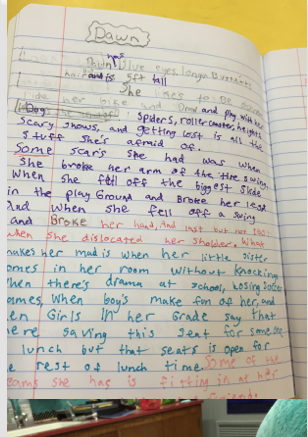 Dawn
Dawn has blue eyes, long Brunette
hair and is 5ft tall
She likes to be
ride her bike and Draw and play with her
Dog. Spiders, rollercoaster, heights
scary shows, and getting lost is all the
stuff she's afraid of.
Some scar's she had was when
she broke her arm of the tire swing
When she fell off the biggest slide
in the play Ground and Broke her leg
And when she fell off a swing
and Broke her hand, And last but not least
when she dislocated her sholder. What
makes her mad is when her little sister
omes in her room without knocking
hen there's drama at school, losing
omes, When boy's make fun of her, and
en Girls in her Grade say that
ere saving this seat for someone
lunch but that seats is open for
e rest of lunch time. Some of the
eams she has is fitting in at her